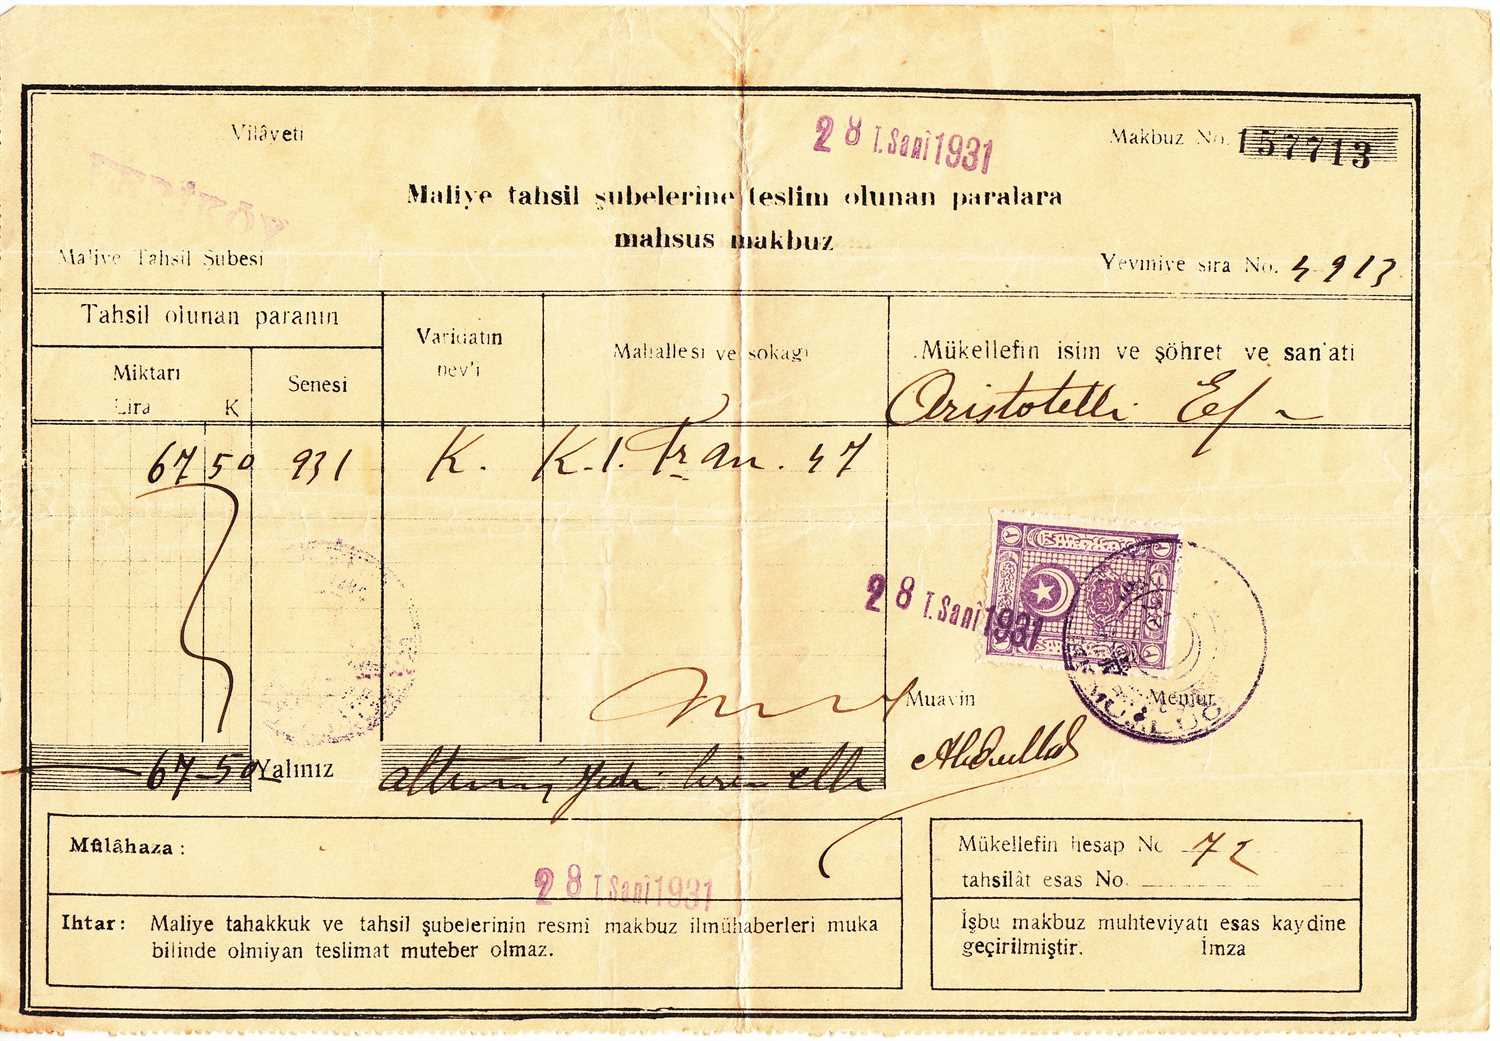 Vilâyeti
28 T.Sanî 1931
Makbuz No. 157713
Maliye tahsil şubelerine teslim olunan paralara
mahsus makbuz
Maliye Tahsil Şubesi
Yevmiye sıra No. 4913
Tahsil olunan paranın
Miktarı
Lira K
Senesi
Varidatın
nev'i
Mahallesi ve sokağı
Mükellefin isim ve şöhret ve san'ati
Aristotelli Ef
67 50 931 K. K.1. 47
28 T.Sanî 1931
Muavin
Memur
67-50 Yalınız altmış yedi lira elli
Abdullah
Mülâhaza:
28 T.Sanî 1931
Ihtar: Maliye tahakkuk ve tahsil şubelerinin resmî makbuz ilmühaberleri muka
bilinde olmiyan teslimat muteber olmaz.
Mükellefin hesap No 72
tahsilât esas No.
İşbu makbuz muhteviyatı esas kaydine
geçirilmiştir. İmza